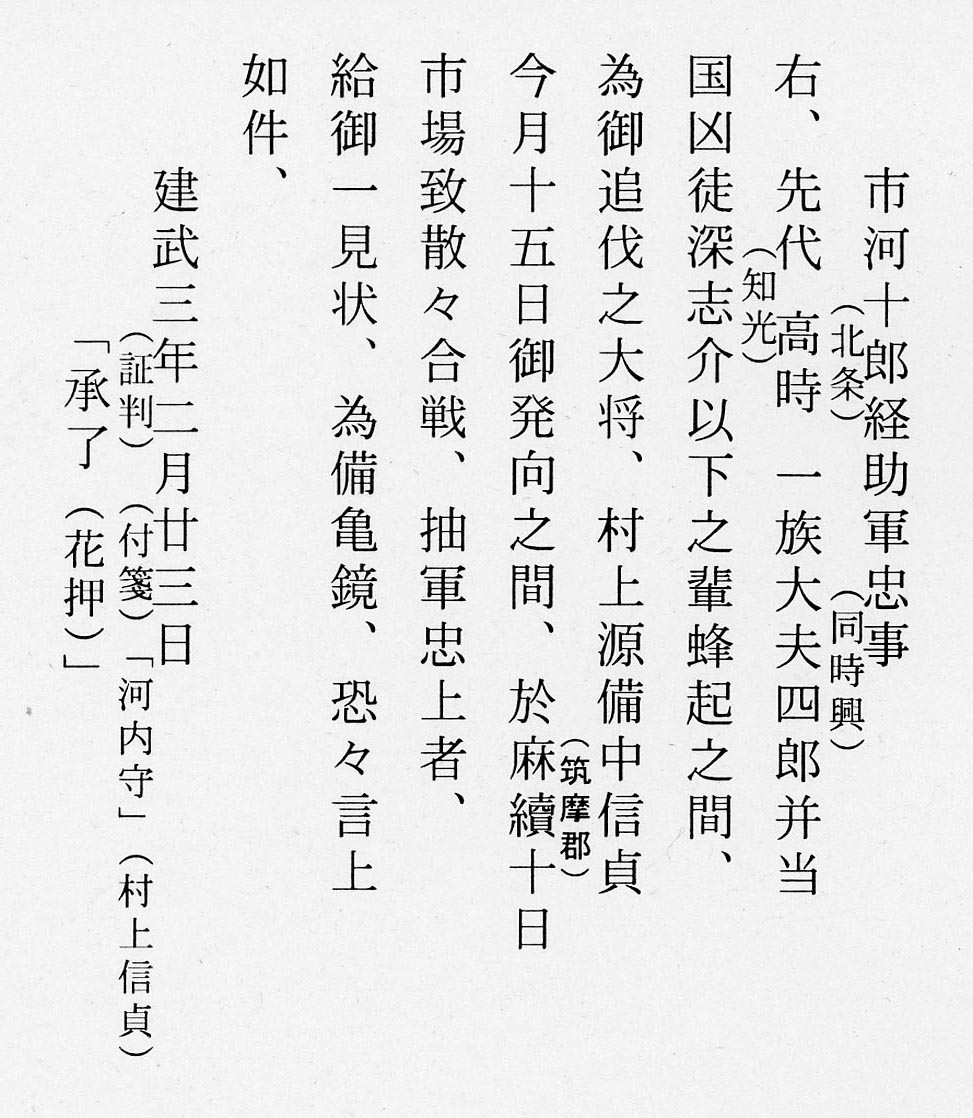 市河十郎経助軍忠事
（北条）（同時興）
右、先代高時一族大夫四郎并当
（知光）
国凶徒深志介以下之輩蜂起之間、
為御追伐之大将、村上源備中信貞
（筑摩郡）
今月十五日御発向之間、於麻續十日
市場致散々合戦、抽軍忠上者、
給御一見状、為備亀鏡、恐々言上
如件、
建武三年二月廿三日
（証判）（付箋）「河内守」（村上信貞）
「承了（花押）」